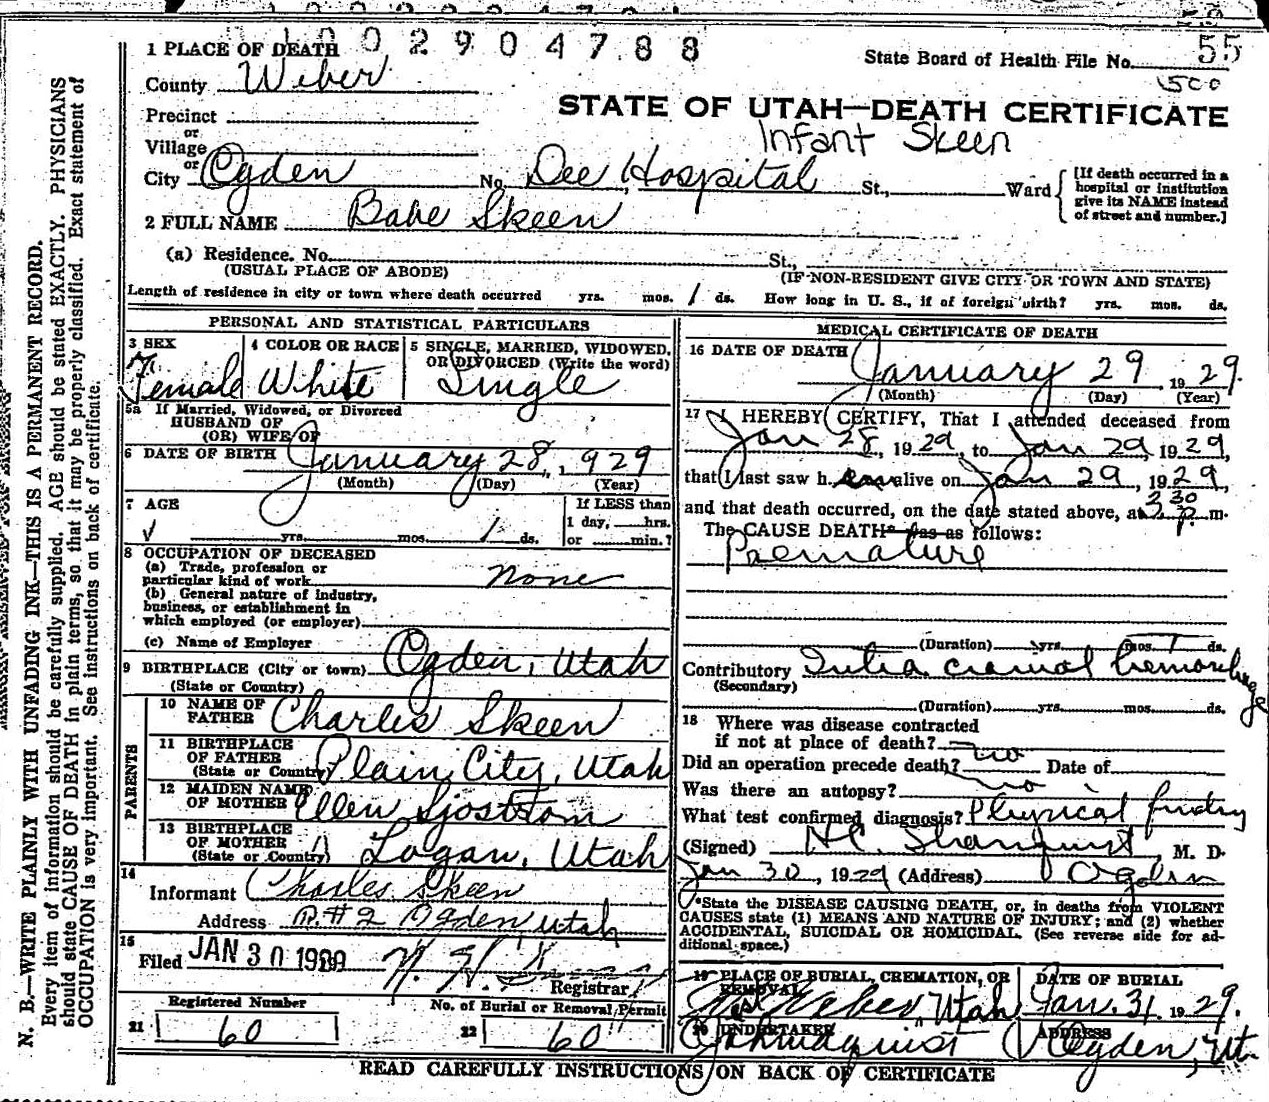 002904788
1 PLACE OF DEATH
State Board of Health File No. 55
County Weber
1500
Precinct
STATE OF UTAH—DEATH CERTIFICATE
or
Village
Infant Skeen
or
City Ogden No. Dee Hospital St., Ward
[If death occurred in a hospital or institution give its NAME instead of street and number.]
2 FULL NAME Babe Skeen
(a) Residence. No. St.,
(USUAL PLACE OF ABODE) (IF NON-RESIDENT GIVE CITY OR TOWN AND STATE)
Length of residence in city or town where death occurred yrs. mos. 1 ds. How long in U. S., if of foreign birth? yrs. mos. ds.
PERSONAL AND STATISTICAL PARTICULARS
3 SEX
Female
4 COLOR OR RACE
White
5 SINGLE, MARRIED, WIDOWED,
OR DIVORCED (Write the word)
Single
5a If Married, Widowed, or Divorced
HUSBAND OF
(OR) WIFE OF
6 DATE OF BIRTH January 28, 1929
(Month) (Day) (Year)
7 AGE
yrs. mos. 1 ds.
If LESS than
1 day, hrs.
or min.?
8 OCCUPATION OF DECEASED
(a) Trade, profession or
particular kind of work none
(b) General nature of industry,
business, or establishment in
which employed (or employer)
(c) Name of Employer
9 BIRTHPLACE (City or town) Ogden, Utah
(State or Country)
PARENTS
10 NAME OF
FATHER Charles Skeen
11 BIRTHPLACE
OF FATHER
(State or Country) Plain City, Utah
12 MAIDEN NAME
OF MOTHER Ellen Sjostrom
13 BIRTHPLACE
OF MOTHER
(State or Country) Logan, Utah
14
Informant Charles Skeen
Address R.#2 Ogden, Utah
15
Filed JAN 30 19
Registrar
Registered Number
21 60
No. of Burial or Removal Permit
22 60
MEDICAL CERTIFICATE OF DEATH
16 DATE OF DEATH January 29, 1929.
(Month) (Day) (Year)
17 I HEREBY CERTIFY, That I attended deceased from
Jan 28, 1929, to Jan 29, 1929,
that I last saw h er alive on Jan 29, 1929,
and that death occurred, on the date stated above, at 3 30 p. m.
The CAUSE DEATH* was as follows:
Premature
(Duration) yrs. mos. 1 ds.
Contributory Intra cranial hemorrhage
(Secondary)
(Duration) yrs. mos. ds.
18 Where was disease contracted
if not at place of death?
Did an operation precede death? no Date of
Was there an autopsy? no
What test confirmed diagnosis? Physical finding
(Signed) M. D.
Jan 30, 1929 (Address) Ogden
*State the DISEASE CAUSING DEATH, or, in deaths from VIOLENT
CAUSES state (1) MEANS AND NATURE OF INJURY; and (2) whether
ACCIDENTAL, SUICIDAL OR HOMICIDAL. (See reverse side for ad-
ditional space.)
19 PLACE OF BURIAL, CREMATION, OR
REMOVAL
West Weber, Utah
DATE OF BURIAL
Jan. 31, 1929.
20 UNDERTAKER
Lindquist
ADDRESS
Ogden, Ut.
READ CAREFULLY INSTRUCTIONS ON BACK OF CERTIFICATE
N. B.—WRITE PLAINLY WITH UNFADING INK—THIS IS A PERMANENT RECORD.
Every item of information should be carefully supplied. AGE should be stated EXACTLY. PHYSICIANS
should state CAUSE OF DEATH in plain terms, so that it may be properly classified. Exact statement of
OCCUPATION is very important. See instructions on back of certificate.